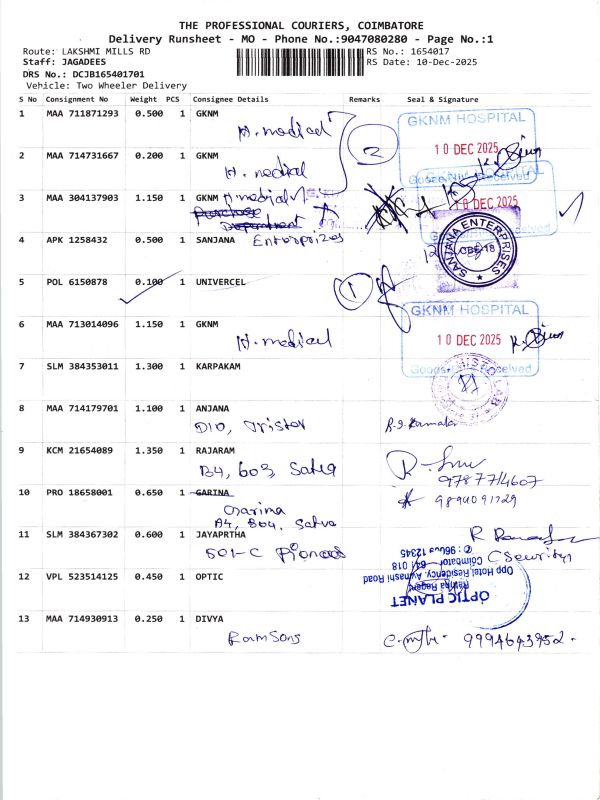 THE PROFESSIONAL COURIERS, COIMBATORE
Delivery Runsheet - MO - Phone No.:9047080280 - Page No.:1
Route: LAKSHMI MILLS RD RS No.: 1654017
Staff: JAGADEES RS Date: 10-Dec-2025
DRS No.: DCJB165401701
Vehicle: Two Wheeler Delivery
S No Consignment No Weight PCS Consignee Details Remarks Seal & Signature
1 MAA 711871293 0.500 1 GKNM
GKNM HOSPITAL
H. medical
10 DEC 2025
2
2 MAA 714731667 0.200 1 GKNM
H. medical
Goods Received
3 MAA 304137903 1.150 1 GKNM H medical
10 DEC 2025
Purchase
Department
4 APK 1258432 0.500 1 SANJANA Enterprizes
SANJANA ENTERPRISES
CBE-18
5 POL 6150878 0.100 1 UNIVERCEL
1
GKNM HOSPITAL
6 MAA 713014096 1.150 1 GKNM
H. medical
10 DEC 2025
Goods Received
7 SLM 384353011 1.300 1 KARPAKAM
8 MAA 714179701 1.100 1 ANJANA
D10, Tristar
9 KCM 21654089 1.350 1 RAJARAM
B4, 603, Satva
10 PRO 18658001 0.650 1 GARINA
9894091729
A4, B04, Satva
11 SLM 384367302 0.600 1 JAYAPRTHA
501-C
12 VPL 523514125 0.450 1 OPTIC
OPTIC PLANET
Opp Hotel Residency, Avinashi Road
Coimbatore 641 018
13 MAA 714930913 0.250 1 DIVYA
Ramsons
9994643952